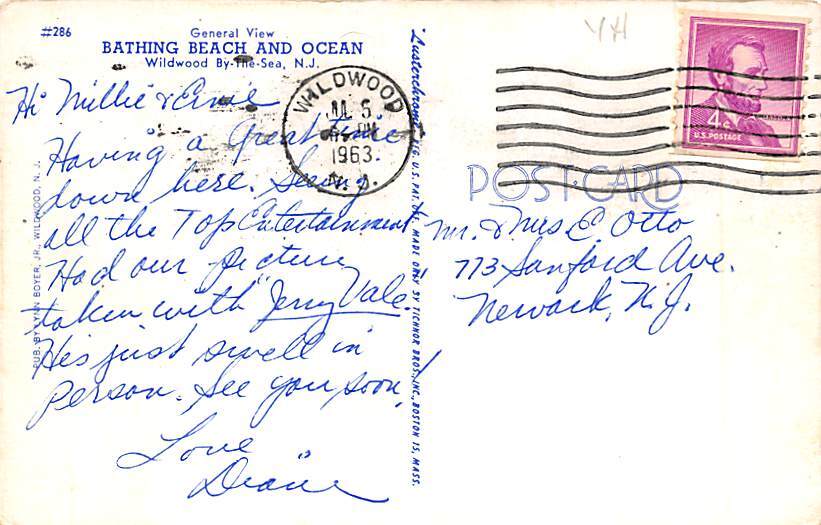 #286
General View
BATHING BEACH AND OCEAN
Wildwood By-The-Sea, N.J.
Hi Millie & Ernie
Having a Great Time
down here. Seeing
all the Top Entertainment
Had our picture
taken with "Jerry Vale".
He's just swell in
Person. See you soon,
Love
Diane
PUB. BY LYNN BOYER, JR., WILDWOOD, N. J.
"Lusterchrome" REG. U.S. PAT. MADE ONLY BY TICHNOR BROS., INC., BOSTON 15, MASS.
WILDWOOD
5
PM
1963
N. J.
YH
4¢
U.S. POSTAGE
POST CARD
Mr. & Mrs. E Otto
773 Sanford Ave.
Newark, N.J.